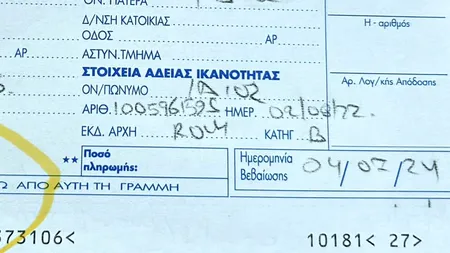 ΟΝ. ΠΑΤΕΡΑ
Δ/ΝΣΗ ΚΑΤΟΙΚΙΑΣ
ΟΔΟΣ ΑΡ.
ΑΡ. ΑΣΤΥΝ.ΤΜΗΜΑ
ΣΤΟΙΧΕΙΑ ΑΔΕΙΑΣ ΙΚΑΝΟΤΗΤΑΣ
ΟΝ/ΠΩΝΥΜΟ
ΑΡΙΘ. 1005961595 ΗΜΕΡ. 02/08/22
ΕΚΔ. ΑΡΧΗ ROU ΚΑΤΗΓ. B
Η - αριθμός
Αρ. Λογ/κής Απόδοσης
** Ποσό πληρωμής:
Ημερομηνία
Βεβαίωσης 04/07/24
Ω ΑΠΟ ΑΥΤΗ ΤΗ ΓΡΑΜΜΗ
573106< 10181< 27>